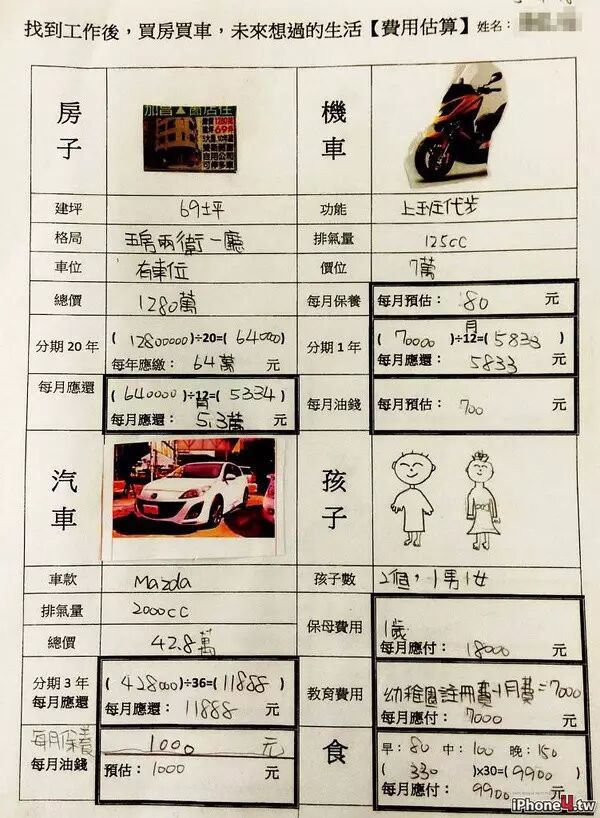 找到工作後，買房買車，未來想過的生活【費用估算】姓名：
房子
加官
1280萬
69坪
機車
建坪
69坪
功能
上班代步
格局
五房兩衛一廳
排氣量
125cc
車位
有車位
價位
7萬
總價
1280萬
每月保養
每月預估： 80 元
分期 20 年
( 12800000 )÷20=( 640000 )
每年應繳： 64萬 元
分期 1 年
( 70000 )÷12=( 5833 )
月
每月應還： 5833 元
每月應還
( 640000 )÷12=( 5334 )
月
每月應還： 5.3萬 元
每月油錢
每月預估： 700 元
汽車
孩子
車款
Mazda
孩子數
2個，1男1女
排氣量
2000cc
保母費用
1歲
每月應付： 18000 元
總價
42.8萬
分期 3 年
每月應還
( 428000 )÷36=( 11888 )
每月應還： 11888 元
教育費用
幼稚園註冊費+月費=7000
每月應付： 7000 元
每月保養
1000 元
每月油錢
預估： 1000 元
食
早： 80 中： 100 晚： 150
( 330 )x30=( 9900 )
每月應付： 9900 元
iPhone4.tw